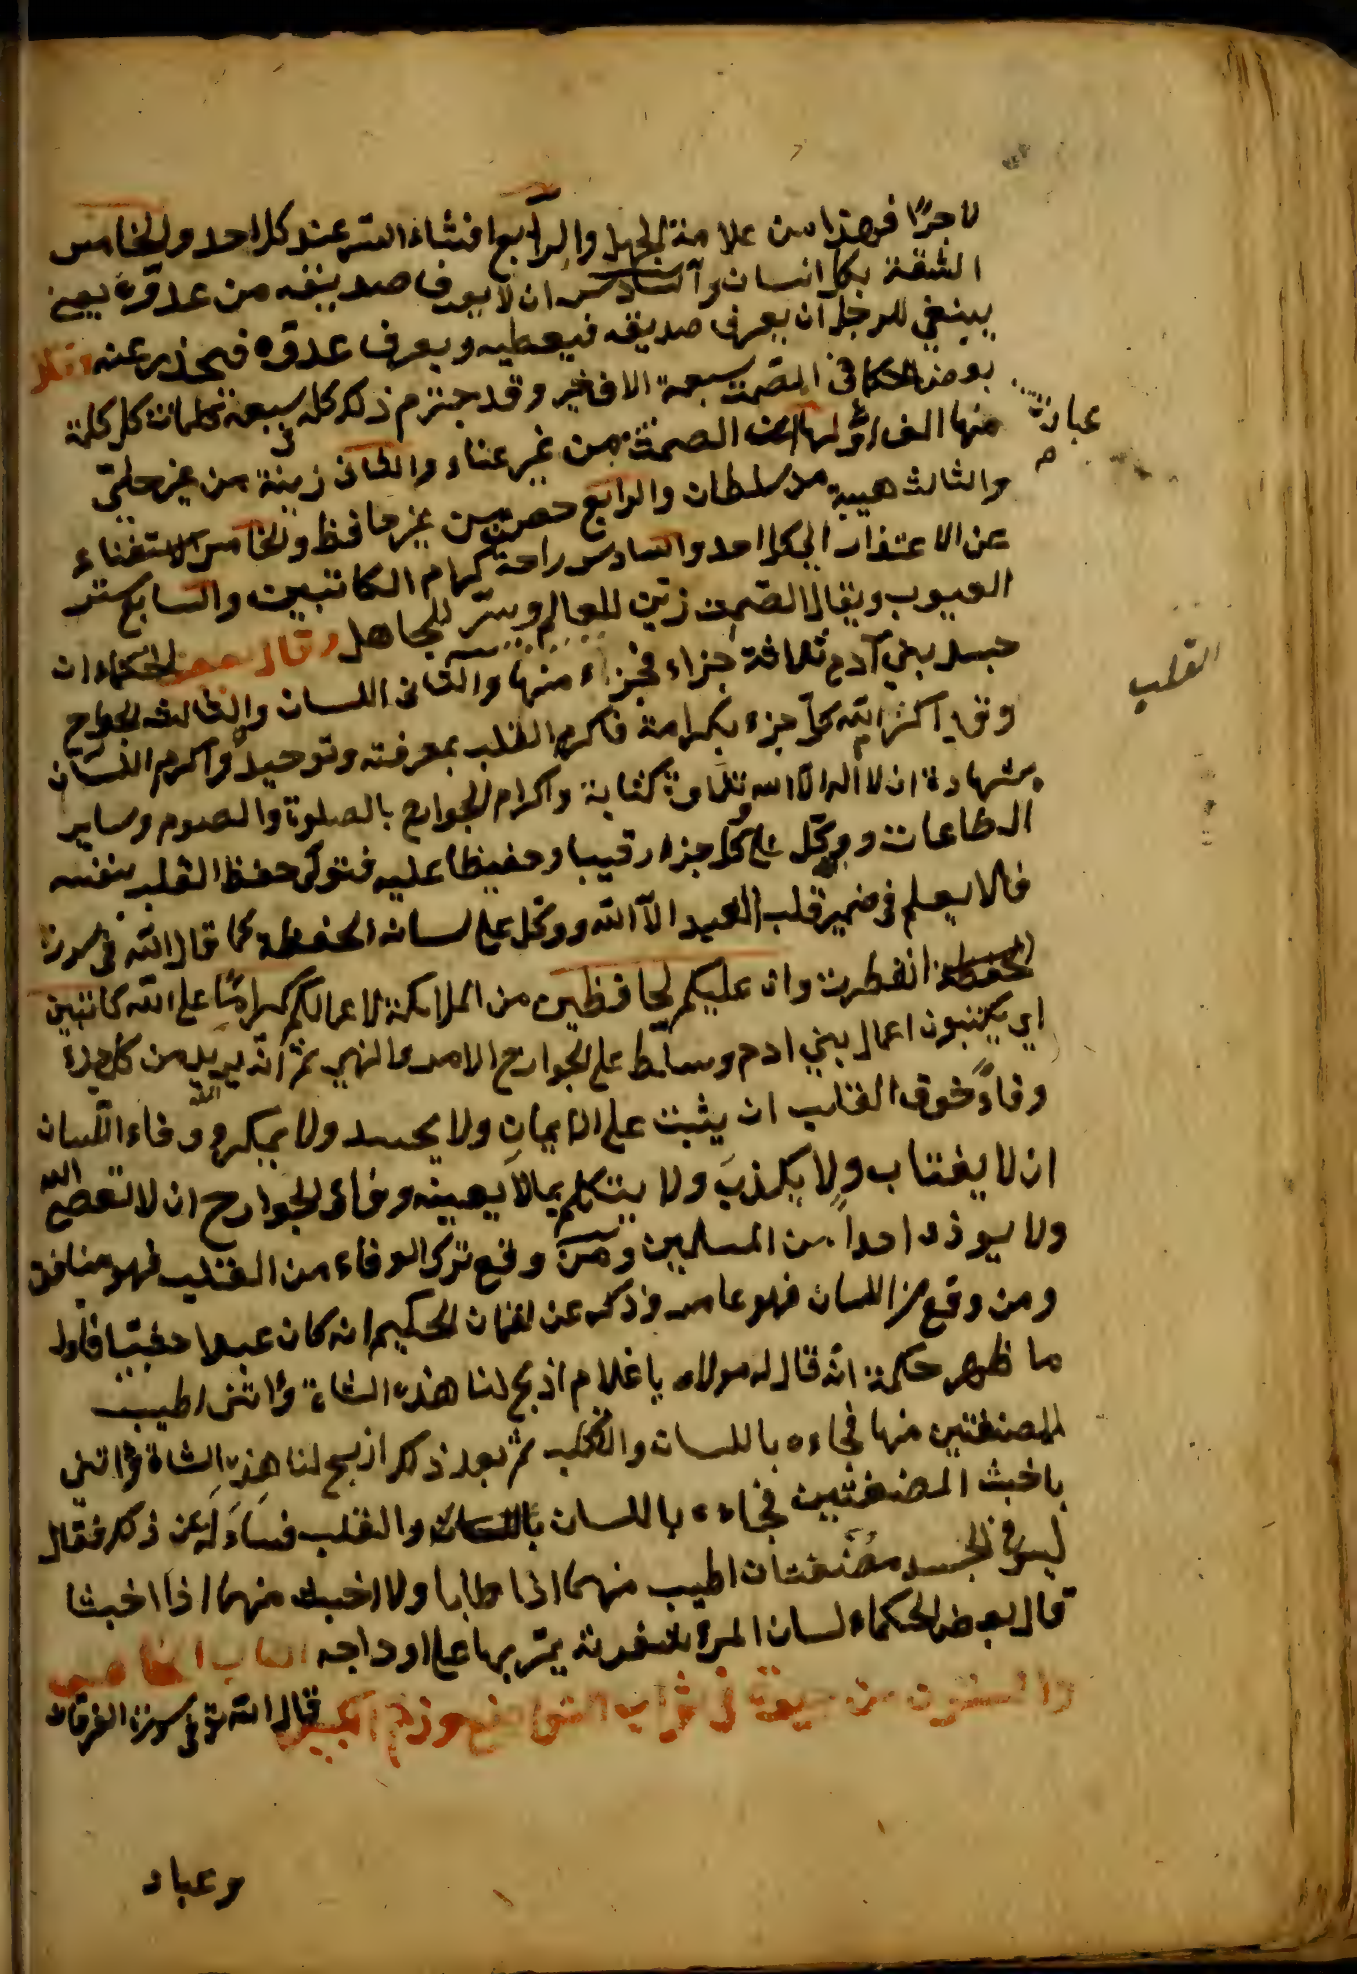 لا جرًا فهذا من علامة الجهل والرابع افشاء السر عند كل احد والخامس
الثقة بكل انسان والسادس ان لا يعرف صديقه من عدوه يعني
ينبغي للرجل ان يعرف صديقه فيعطيه ويعرف عدوه فيحذر عنه وقال
بعض الحكما في الصمت سبعة الاف خير وقد جتزم ذلك كله في سبعة كلمات كل كلمة
عبادة
منها الف اولها ان الصمت من غير عناء والثاني زينة من غير حلي
والثالث هيبة من سلطان والرابع حصن من غير حافظ والخامس الاستغناء
عن الاعتذار الى كل احد والسادس راحة كرام الكاتبين والسابع ستر
العيوب ويقال الصمت زين للعالم وستر للجاهل وقال بعض الحكماء ان
جسد بني آدم ثلاثة اجزاء فجزاء منها والثاني اللسان والثالث الجوارح
القلب
وقد اكرم الله كل جزء بكرامة فاكرم القلب بمعرفته وتوحيده واكرم اللسان
بشهادة ان لا اله الا الله وتلاوة كتابة واكرام الجوارح بالصلوة والصوم وساير
الطاعات ووكل على كل جزء رقيبا وحفيظا عليه فتولى حفظ القلب بنفسه
فالا يعلم في ضمير قلب العبد الا الله ووكل على لسانه الحفظة كما قال الله في سورة
انفطرت وان عليكم لحافظين من الملائكة لاعمالكم كراما على الله كاتبين
اي يكتبون اعمال بني ادم وسلط على الجوارح الامر والنهي ثم انه يريد من كل جزء
وفاء فوق القلب ان يثبت على الايمان ولا يحسد ولا يمكر ووفاء اللسان
ان لا يغتاب ولا يكذب ولا يتكلم بما لا يعينه وفاء الجوارح ان لا تعصي الله
ولا يوذي احدا من المسلمين ومن وقع ترك الوفاء من القلب فهو منافق
ومن وقع من اللسان فهو عاصي وذكر عن لقمان الحكيم انه كان عبدا حبشيا فاول
ما ظهر حكمة انه قال له مولاه يا غلام اذبح لنا هذه الشاة وأتني اطيب
المضغتين منها فجاءه باللسان والقلب ثم بعد ذلك اذبح لنا هذه الشاة وأتني
باخبث المضغتين فجاءه باللسان والقلب فساءله عن ذلك فقال
ليس في الجسد مضغتان اطيب منهما اذا طابا ولا اخبث منهما اذا اخبثا
قال بعض الحكماء لسان المرء يمر بها على اوداجه الباب الخامس
والستون من في ثواب التواضع وذم الكبير قال الله تع في سورة الفرقان
وعباد